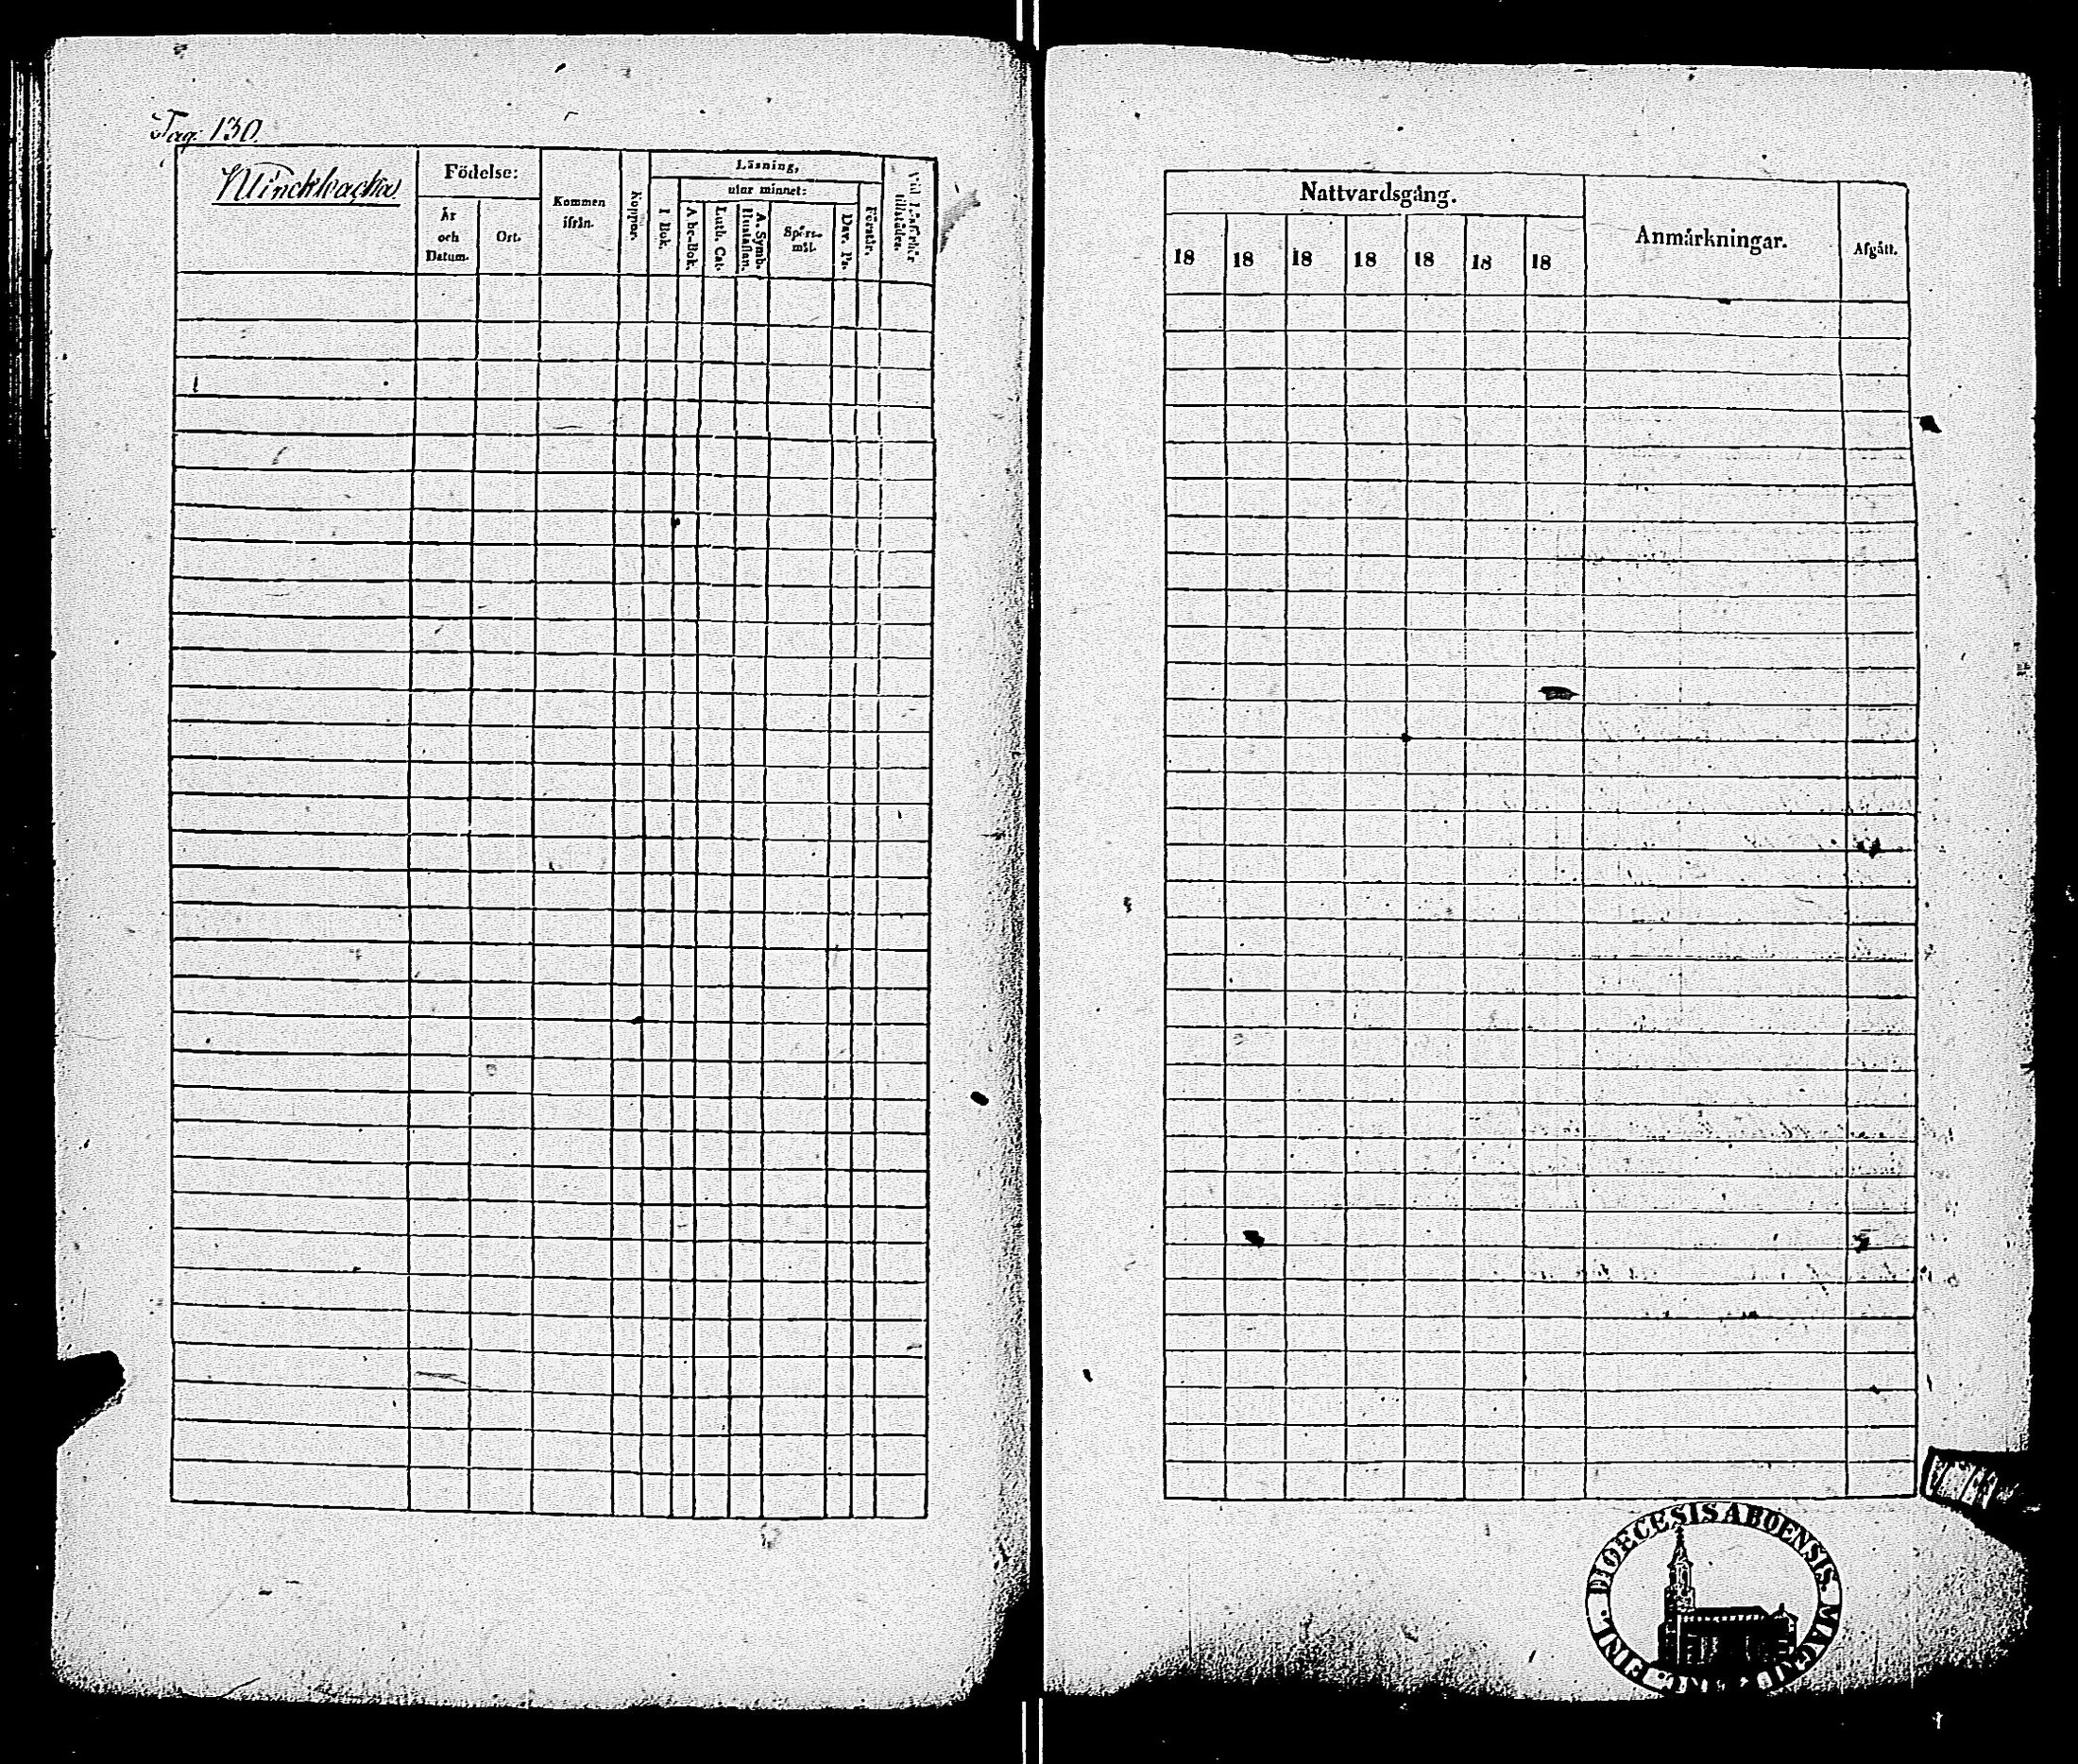 Pag: 130.
Födelse:
Kommen
ifrån.
Koppor.
Läsning,
utur minnet:
I Bok.
Abc-Bok.
Luth. Cat.
A. Symb.
Hustaflan.
Spörs-
mål.
Dav. Ps.
Förstår.
Vid Läsförhör
tillstädes.
År
och
Datum.
Ort.
Nattvardsgång.
Anmärkningar.
Afgått.
18 18 18 18 18 18 18
DIOECESIS ABOENSIS. MAGNI
FINL.